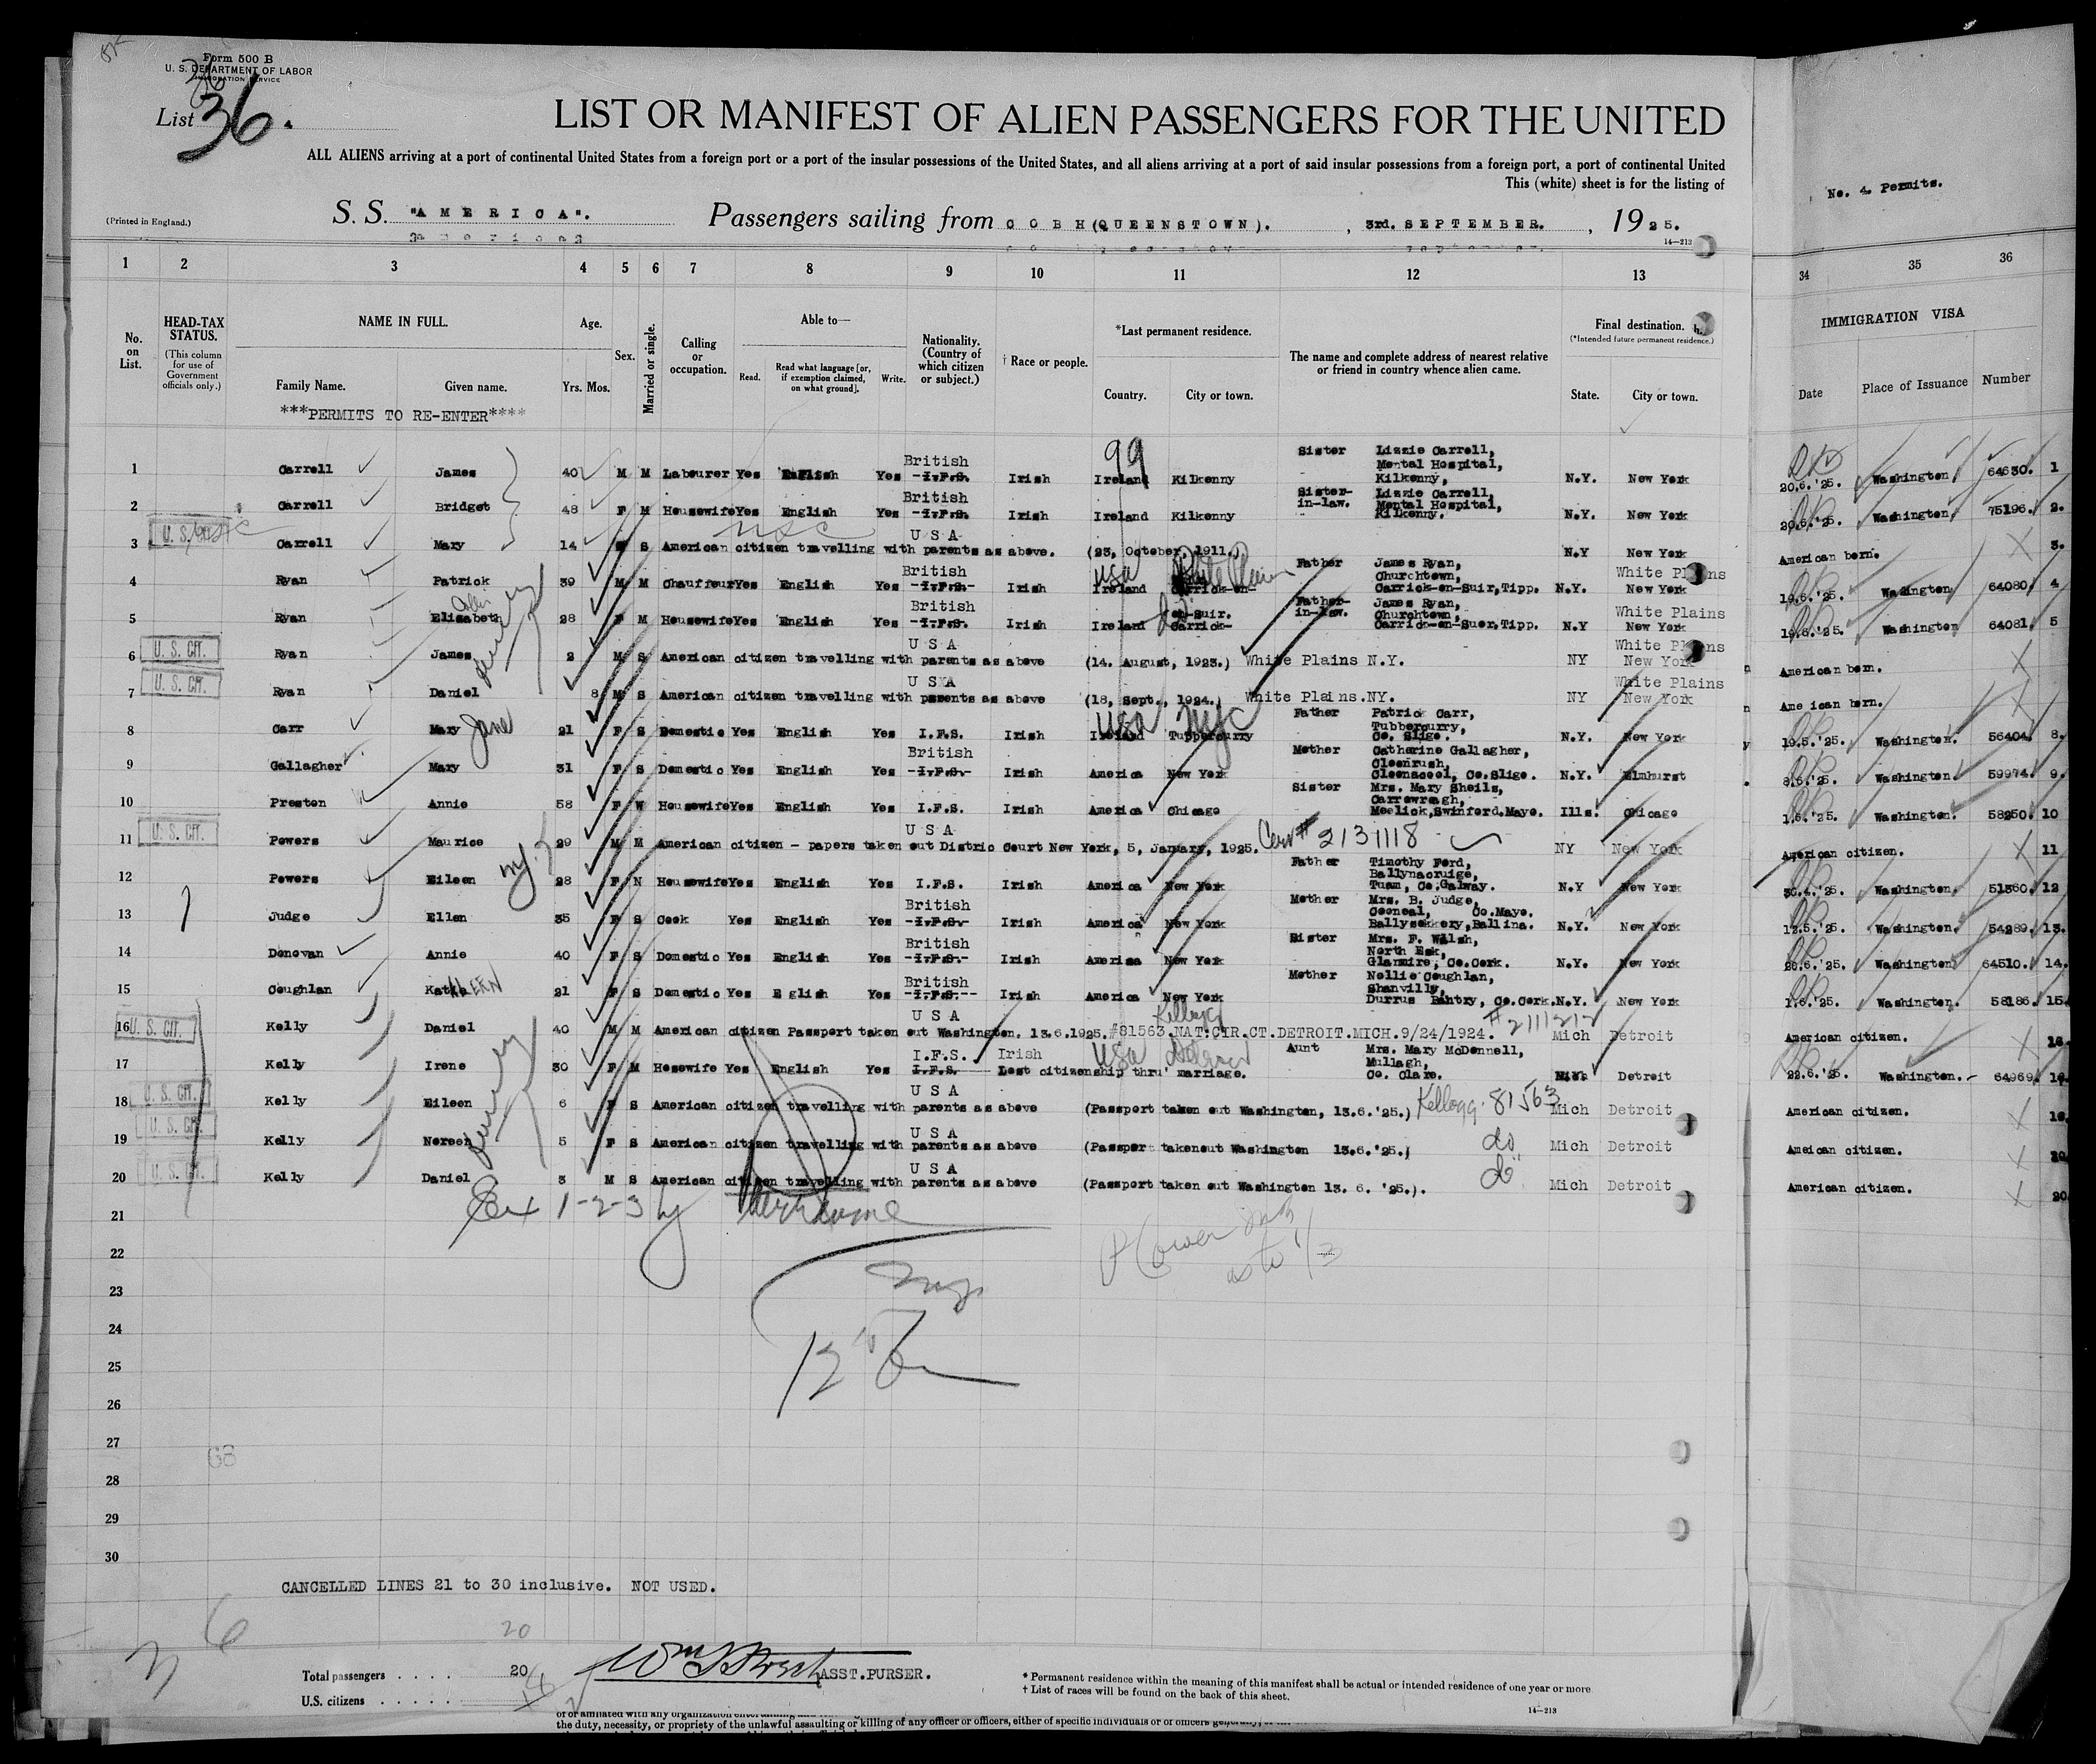 Form 500 B
U. S. DEPARTMENT OF LABOR
IMMIGRATION SERVICE
List 36.
LIST OR MANIFEST OF ALIEN PASSENGERS FOR THE UNITED
ALL ALIENS arriving at a port of continental United States from a foreign port or a port of the insular possessions of the United States, and all aliens arriving at a port of said insular possessions from a foreign port, a port of continental United
This (white) sheet is for the listing of
No. 4. Permits.
(Printed in England.)
S. S. "AMERICA". Passengers sailing from COBH(QUEENSTOWN). , 3rd. SEPTEMBER. , 1925.
14—213
1 2 3 4 5 6 7 8 9 10 11 12 13 34 35 36
No. on List.
HEAD-TAX STATUS.
(This column for use of Government officials only.)
NAME IN FULL.
Family Name. Given name.
Age.
Yrs. Mos.
Sex.
Married or single.
Calling or occupation.
Able to—
Read. Read what language [or, if exemption claimed, on what ground]. Write.
Nationality. (Country of which citizen or subject.)
† Race or people.
*Last permanent residence.
Country. City or town.
The name and complete address of nearest relative or friend in country whence alien came.
Final destination.
(*Intended future permanent residence.)
State. City or town.
IMMIGRATION VISA
Date Place of Issuance Number
***PERMITS TO RE-ENTER****
99
1 Carroll James 40 M M Labourer Yes English Yes British I.F.S. Irish Ireland Kilkenny Sister Lizzie Carroll, Mental Hospital, Kilkenny, N.Y. New York 20.6.'25. Washington 64630. 1
2 Carroll Bridget 48 F M Housewife Yes English Yes British I.F.S. Irish Ireland Kilkenny Sister-in-law. Lizzie Carroll, Mental Hospital, Kilkenny. N.Y. New York 20.6.'25. Washington. 75196. 2.
3 Carroll Mary 14 S USC U S A American citizen travelling with parents as above. (23, October, 1911.) N.Y New York American born. 3.
4 Ryan Patrick 39 M M Chauffeur Yes English Yes British I.F.S. Irish Ireland USA White Plains Carrick-on- Father James Ryan, Churchtown, Carrick-on-Suir,Tipp. N.Y. White Plains New York 19.6.'25. Washington 64080. 4
5 Ryan Elizabeth 28 F M Housewife Yes English Yes British I.F.S. Irish Ireland do on-Suir. Carrick- Father-in-law. James Ryan, Churchtown, Carrick-on-Suer,Tipp. N.Y White Plains New York 19.6.'25. Washington 64081. 5
6 U. S. CIT. Ryan James 2 M S U S A American citizen travelling with parents as above (14. August, 1923.) White Plains N.Y. NY White Plains New York American born.
7 U. S. CIT. Ryan Daniel 8 M S U S A American citizen travelling with parents as above (18, Sept., 1924.) White Plains.NY. NY White Plains New York Ame ican born.
8 Carr Mary Jane 21 F S Domestic Yes English Yes I.F.S. Irish Ireland Tubbercurry USA NYC Father Patric Carr, Tubbercurry, Co. Sligo. N.Y. New York 19.5.'25. Washington. 56404. 8.
9 Gallagher Mary 31 F S Domestic Yes English Yes British I.F.S. Irish America New York Mother Catherine Gallagher, Cloonrush, Cloonacool, Co.Sligo. N.Y. Elmhurst 8.6.'25. Washington. 59974. 9.
10 Preston Annie 58 F W Housewife Yes English Yes I.F.S. Irish America Chicago Sister Mrs. Mary Sheils, Carrowreagh, Meelick,Swinford.Mayo. Ills. Chicago 1.6.'25. Washington. 58250. 10
11 U. S. CIT. Powers Maurice 29 M M U S A American citizen - papers taken out Distric Court New York, 5, January, 1925. Cer# 2131118 NY New York American citizen. 11
12 Powers Eileen 28 F N Housewife Yes English Yes I.F.S. Irish America New York Father Timothy Ford, Ballynacruige, Tuam, Co.Galway. N.Y New York 30.4.'25. Washington. 51360. 12
13 Judge Ellen 35 F S Cook Yes English Yes British I.F.S. Irish America New York Mother Mrs. B. Judge, Cooneal, Co.Mayo. Ballysokkery,Ballina. N.Y. New York 12.5.'25. Washington. 54289. 13.
14 Donovan Annie 40 F S Domestic Yes English Yes British I.F.S. Irish America New York Sister Mrs. F. Walsh, North Esk, Glanmire, Co.Cork. N.Y. New York 20.6.'25. Washington. 64510. 14.
15 Coughlan KathLEEN 21 F S Domestic Yes E glish Yes British I.F.S. Irish America New York Mother Nellie Coughlan, Shanvilly, Durrus Bantry, Co.Cork. N.Y. New York 1.6.'25. Washington. 58186. 15.
16 U. S. CIT. Kelly Daniel 40 M M U S A American citizen Passport taken out Washington. 13.6.1925. Kellogg #81563.NAT:CIR.CT.DETROIT.MICH.9/24/1924. #2111212 Mich Detroit American citizen. 16.
17 Kelly Irene 30 F M Hosewife Yes English Yes I.F.S. I.F.S. Irish Lost citizenship thru' marriage. USA Detroit Aunt Mrs. Mary McDonnell, Mullagh, Co. Clare. Mich Detroit 22.6.'25. Washington. 64969.
18 U. S. CIT. Kelly Eileen 6 F S U S A American citizen travelling with parents as above (Passport taken out Washington, 13.6.'25.) Kellogg. 81563 Mich Detroit American citizen.
19 U. S. CIT. Kelly Noreen 5 F S U S A American citizen travelling with parents as above (Passpor takenout Washington 13.6.'25.) do Mich Detroit Ameican citizen.
20 U. S. CIT. Kelly Daniel 3 M S U S A American citizen travelling with parents as above (Passport taken out Washington 13. 6. '25.). do Mich Detroit American citizen. 20
21
22
23
24
25
26
27
28
29
30
CANCELLED LINES 21 to 30 inclusive. NOT USED.
20
6
Total passengers . . . . 20
ASST.PURSER.
U.S. citizens . . . . .
* Permanent residence within the meaning of this manifest shall be actual or intended residence of one year or more
† List of races will be found on the back of this sheet.
14—213
the duty, necessity, or propriety of the unlawful assaulting or killing of any officer or officers, either of specific individuals or of officers generally,